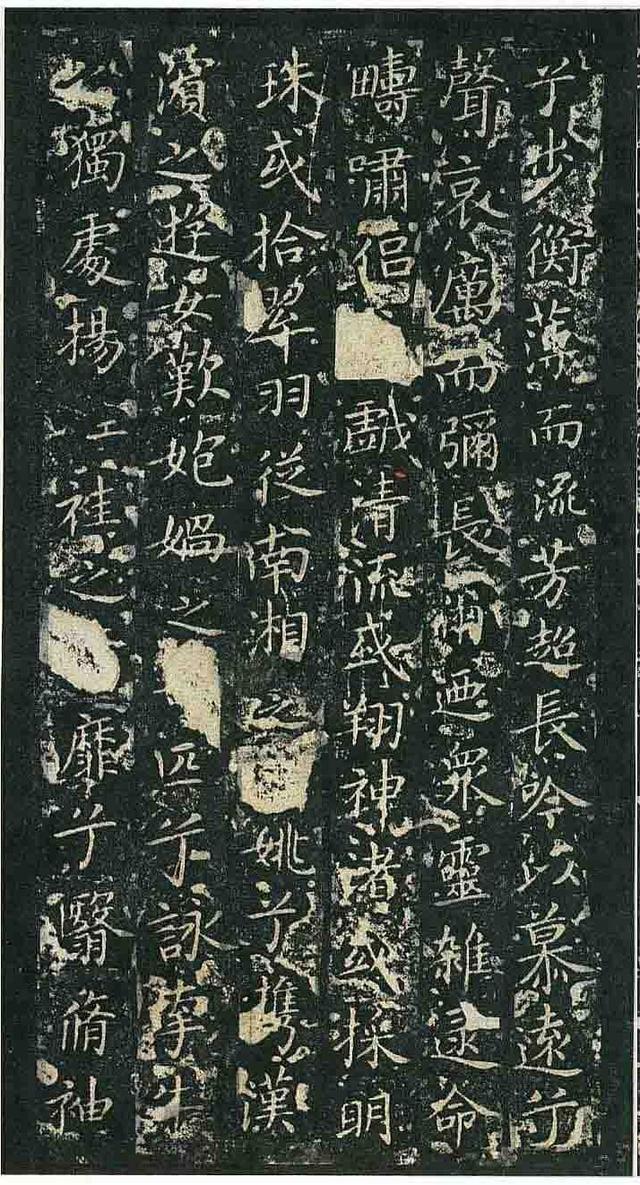 兮步衡薄而流芳超長吟以慕遠兮
聲哀厲而彌長爾迺眾靈雜遝命
疇嘯侶戲清流或翔神渚或採明
珠或拾翠羽從南湘之姚兮攜漢
濱之遊女歎媧之匹兮詠牽牛
之獨處揚袿之靡兮翳脩袖